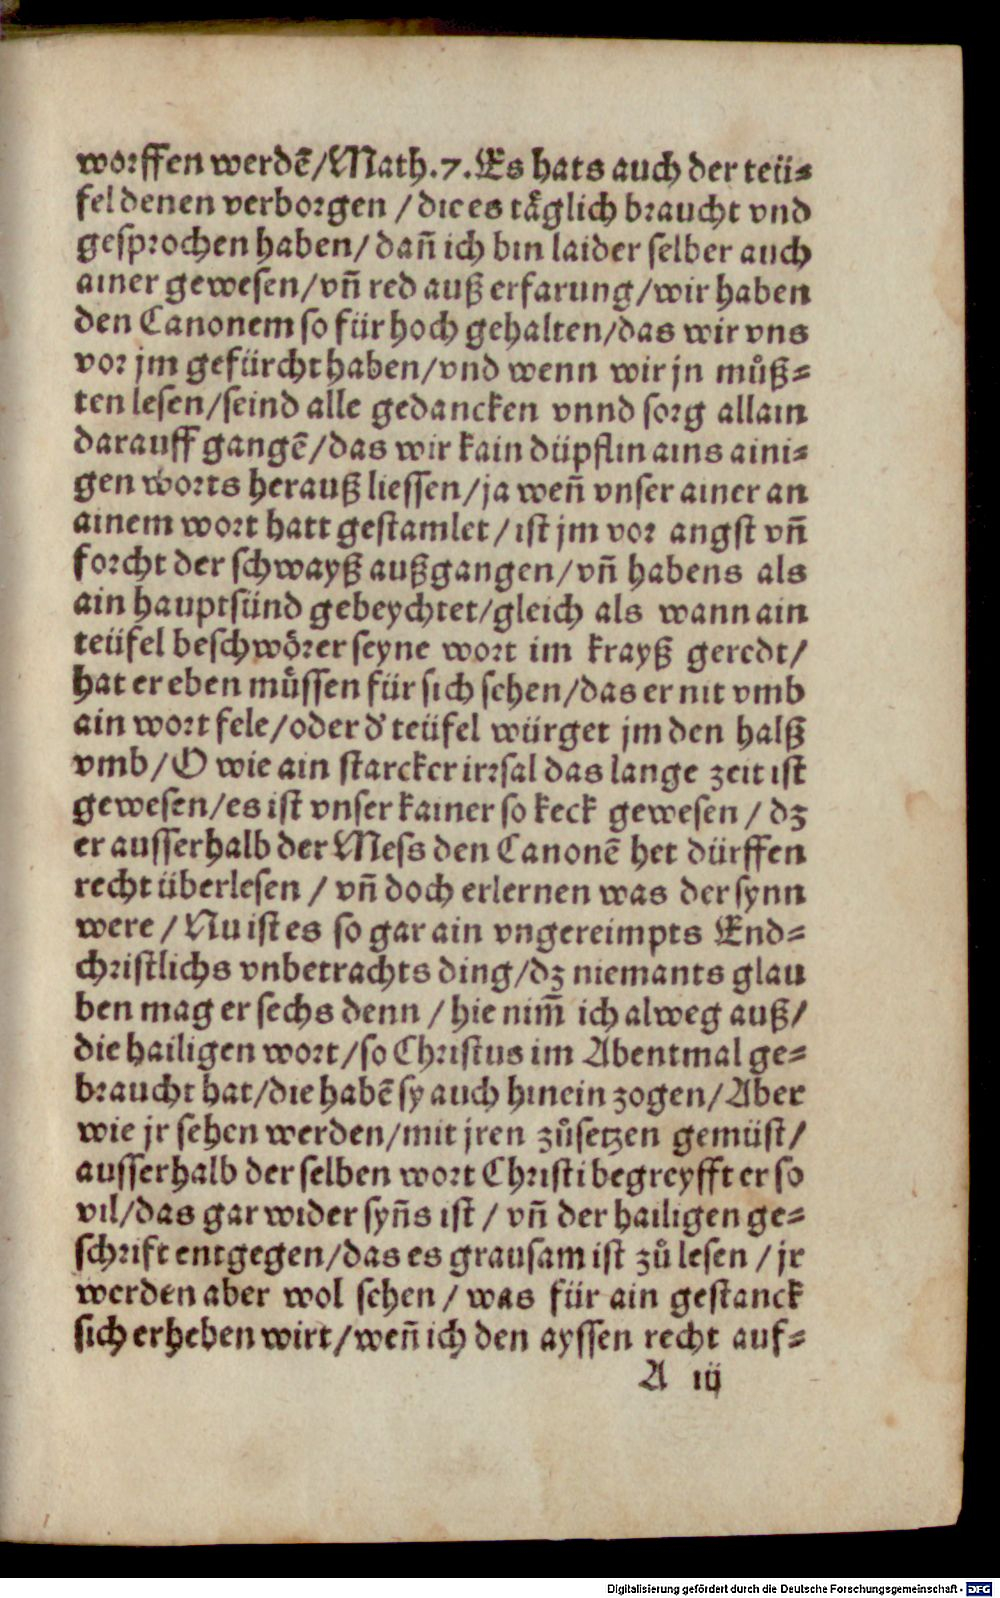 worffen werdē/Math.7.Es hats auch der teü⸗
fel denen verborgen /die es tåglich braucht vnd
gesprochen haben/ dañ ich bin laider selber auch
ainer gewesen/vñ red auß erfarung/wir haben
den Canonem so für hoch gehalten/das wir vns
vor jm gefürcht haben/vnd wenn wir jn můß⸗
ten lesen/seind alle gedancken vnnd sorg allain
darauff gangē/das wir kain düpflin ains aini⸗
gen worts herauß liessen/ja weñ vnser ainer an
ainem wort hatt gestamlet/ist jm vor angst vñ
forcht der schwayß außgangen/vñ habens als
ain hauptsünd gebeychtet/gleich als wann ain
teüfel beschwörer seyne wort im krayß geredt/
hat er eben müssen für sich sehen/das er nit vmb
ain wort fele/oder d' teüfel würget jm den halß
vmb/O wie ain starcker irrsal das lange zeit ist
gewesen/es ist vnser kainer so keck gewesen / dz
er ausserhalb der Mess den Canonē het dürffen
recht überlesen / vñ doch erlernen was der synn
were /Nu ist es so gar ain vngereimpts End⸗
christlichs vnbetrachts ding/dz niemants glau
ben mag er sechs denn /hie nim̄ ich alweg auß/
die hailigen wort/so Christus im Abentmal ge⸗
braucht hat/die habē sy auch hinein zogen/Aber
wie jr sehen werden/mit jren zůsetzen gemüst/
ausserhalb der selben wort Christi begreyfft er so
vil/das gar wider syñs ist / vñ der hailigen ge⸗
schrift entgegen/das es grausam ist zů lesen /jr
werden aber wol sehen / was für ain gestanck
sich erheben wirt/weñ ich den ayssen recht auf⸗
A iij
Digitalisierung gefördert durch die Deutsche Forschungsgemeinschaft - DFG